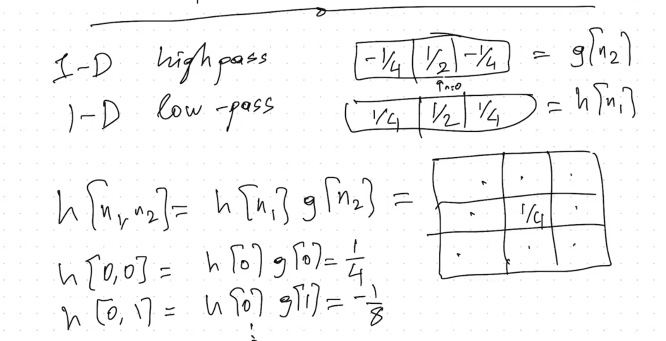 1-D high pass -1/4 1/2 -1/4 = g[n2]
↑n=0
1-D low-pass 1/4 1/2 1/4 = h[n1]
h[n1, n2] = h[n1] g[n2] =
1/4
h[0,0] = h[0] g[0] = 1/4
h[0,1] = h[0] g[1] = -1/8